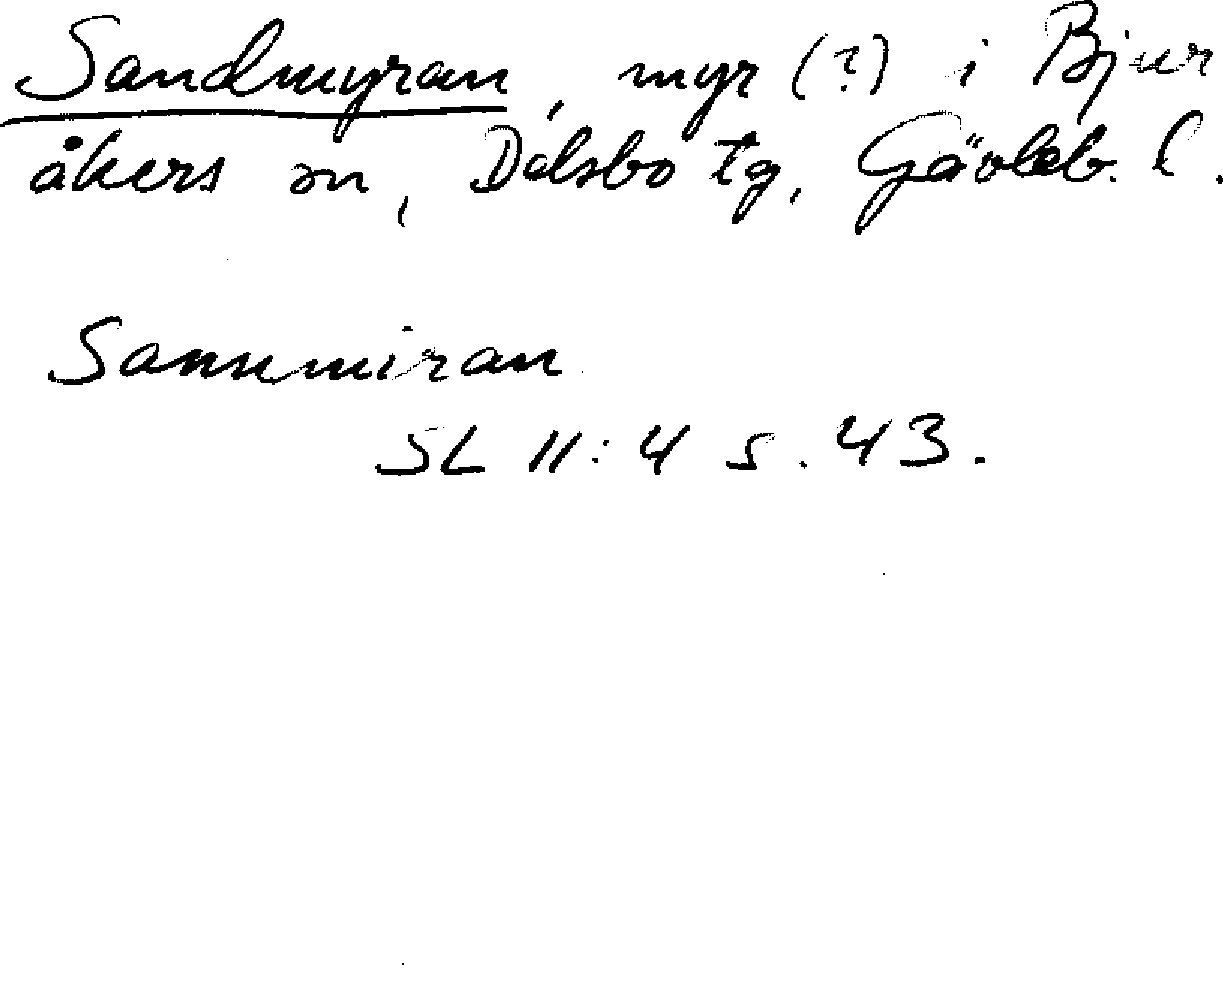 Sandmyran, myr (?) i Bjur
åkers sn, Delsbo tg, Gävleb. l.
Sannemiran
SL 11:4 s. 43.